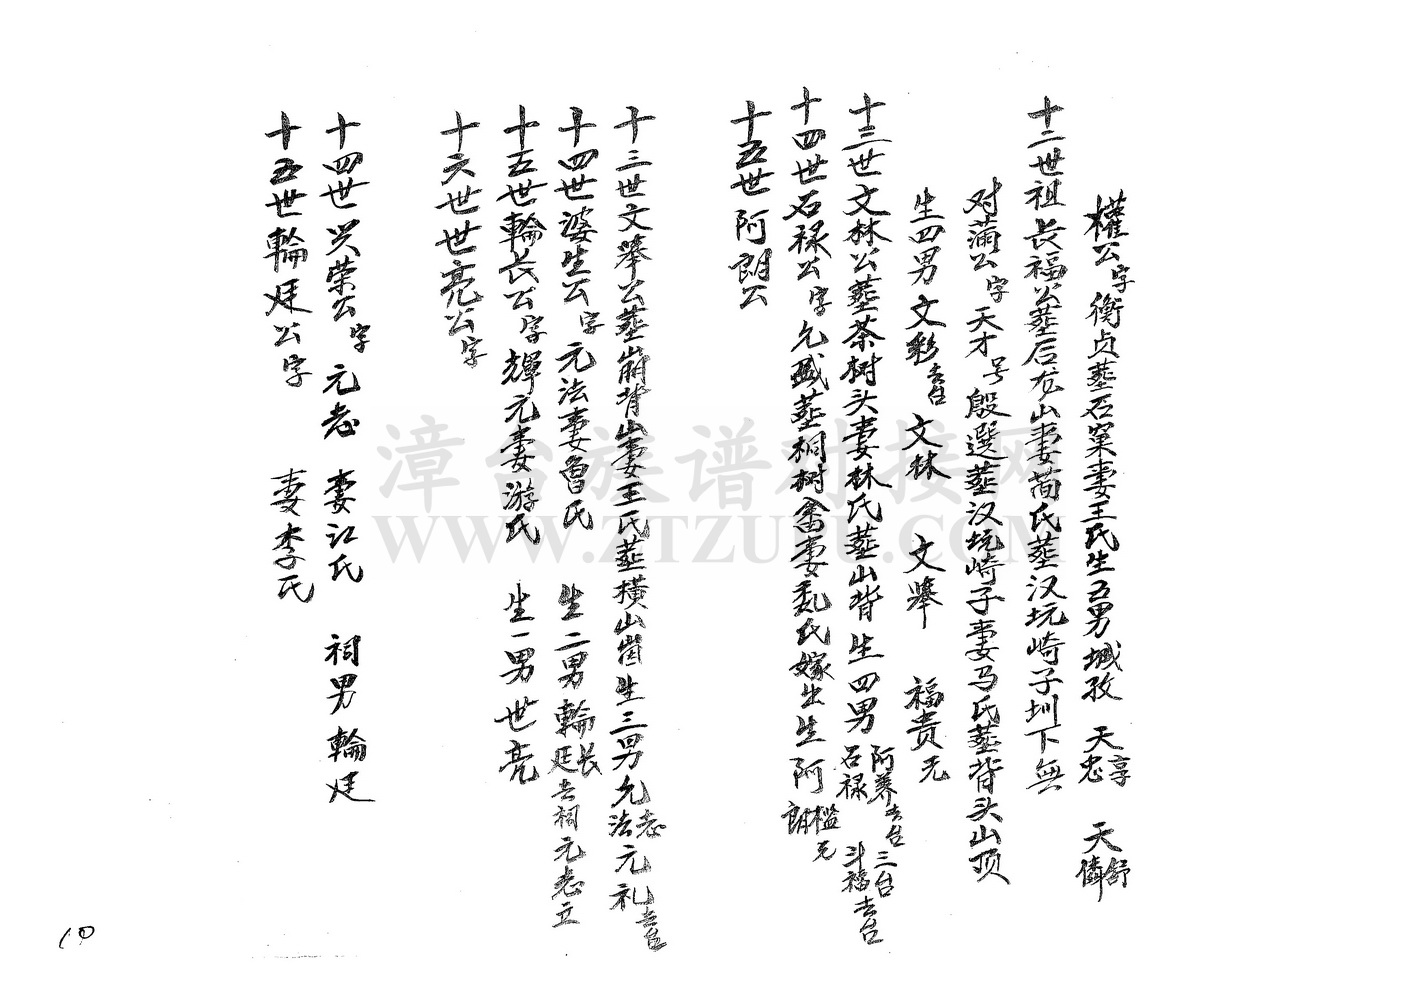 權公字衡贞葬石窠妻王氏生五男城孜 天享 天忠 天舒 天儔
十二世祖长福公葬后龙山妻萧氏葬汉坑崎子圳下無
对蒲公字天才号殷選葬汉坑崎子妻马氏葬背头山顶
生四男文彩去台 文林 文举 福贵无
十三世文林公葬茶树头妻林氏葬山背生四男石禄 阿养去台 三台 斗福去台
十四世石禄公字允盛葬桐树畬妻魏氏嫁出生阿朗 槛无
十五世阿朗公
十三世文举公葬崩背山妻王氏葬横山崗生三男允志 法 元礼去台
十四世婆生公字元法妻鲁氏 生二男輪长 廷去祠元志立
十五世輪长公字輝元妻游氏 生一男世亮
十六世世亮公字
十四世兴荣公字元志 妻江氏 祠男輪廷
十五世輪廷公字 妻李氏
漳台族谱对接网
WWW.ZTZUPU.COM